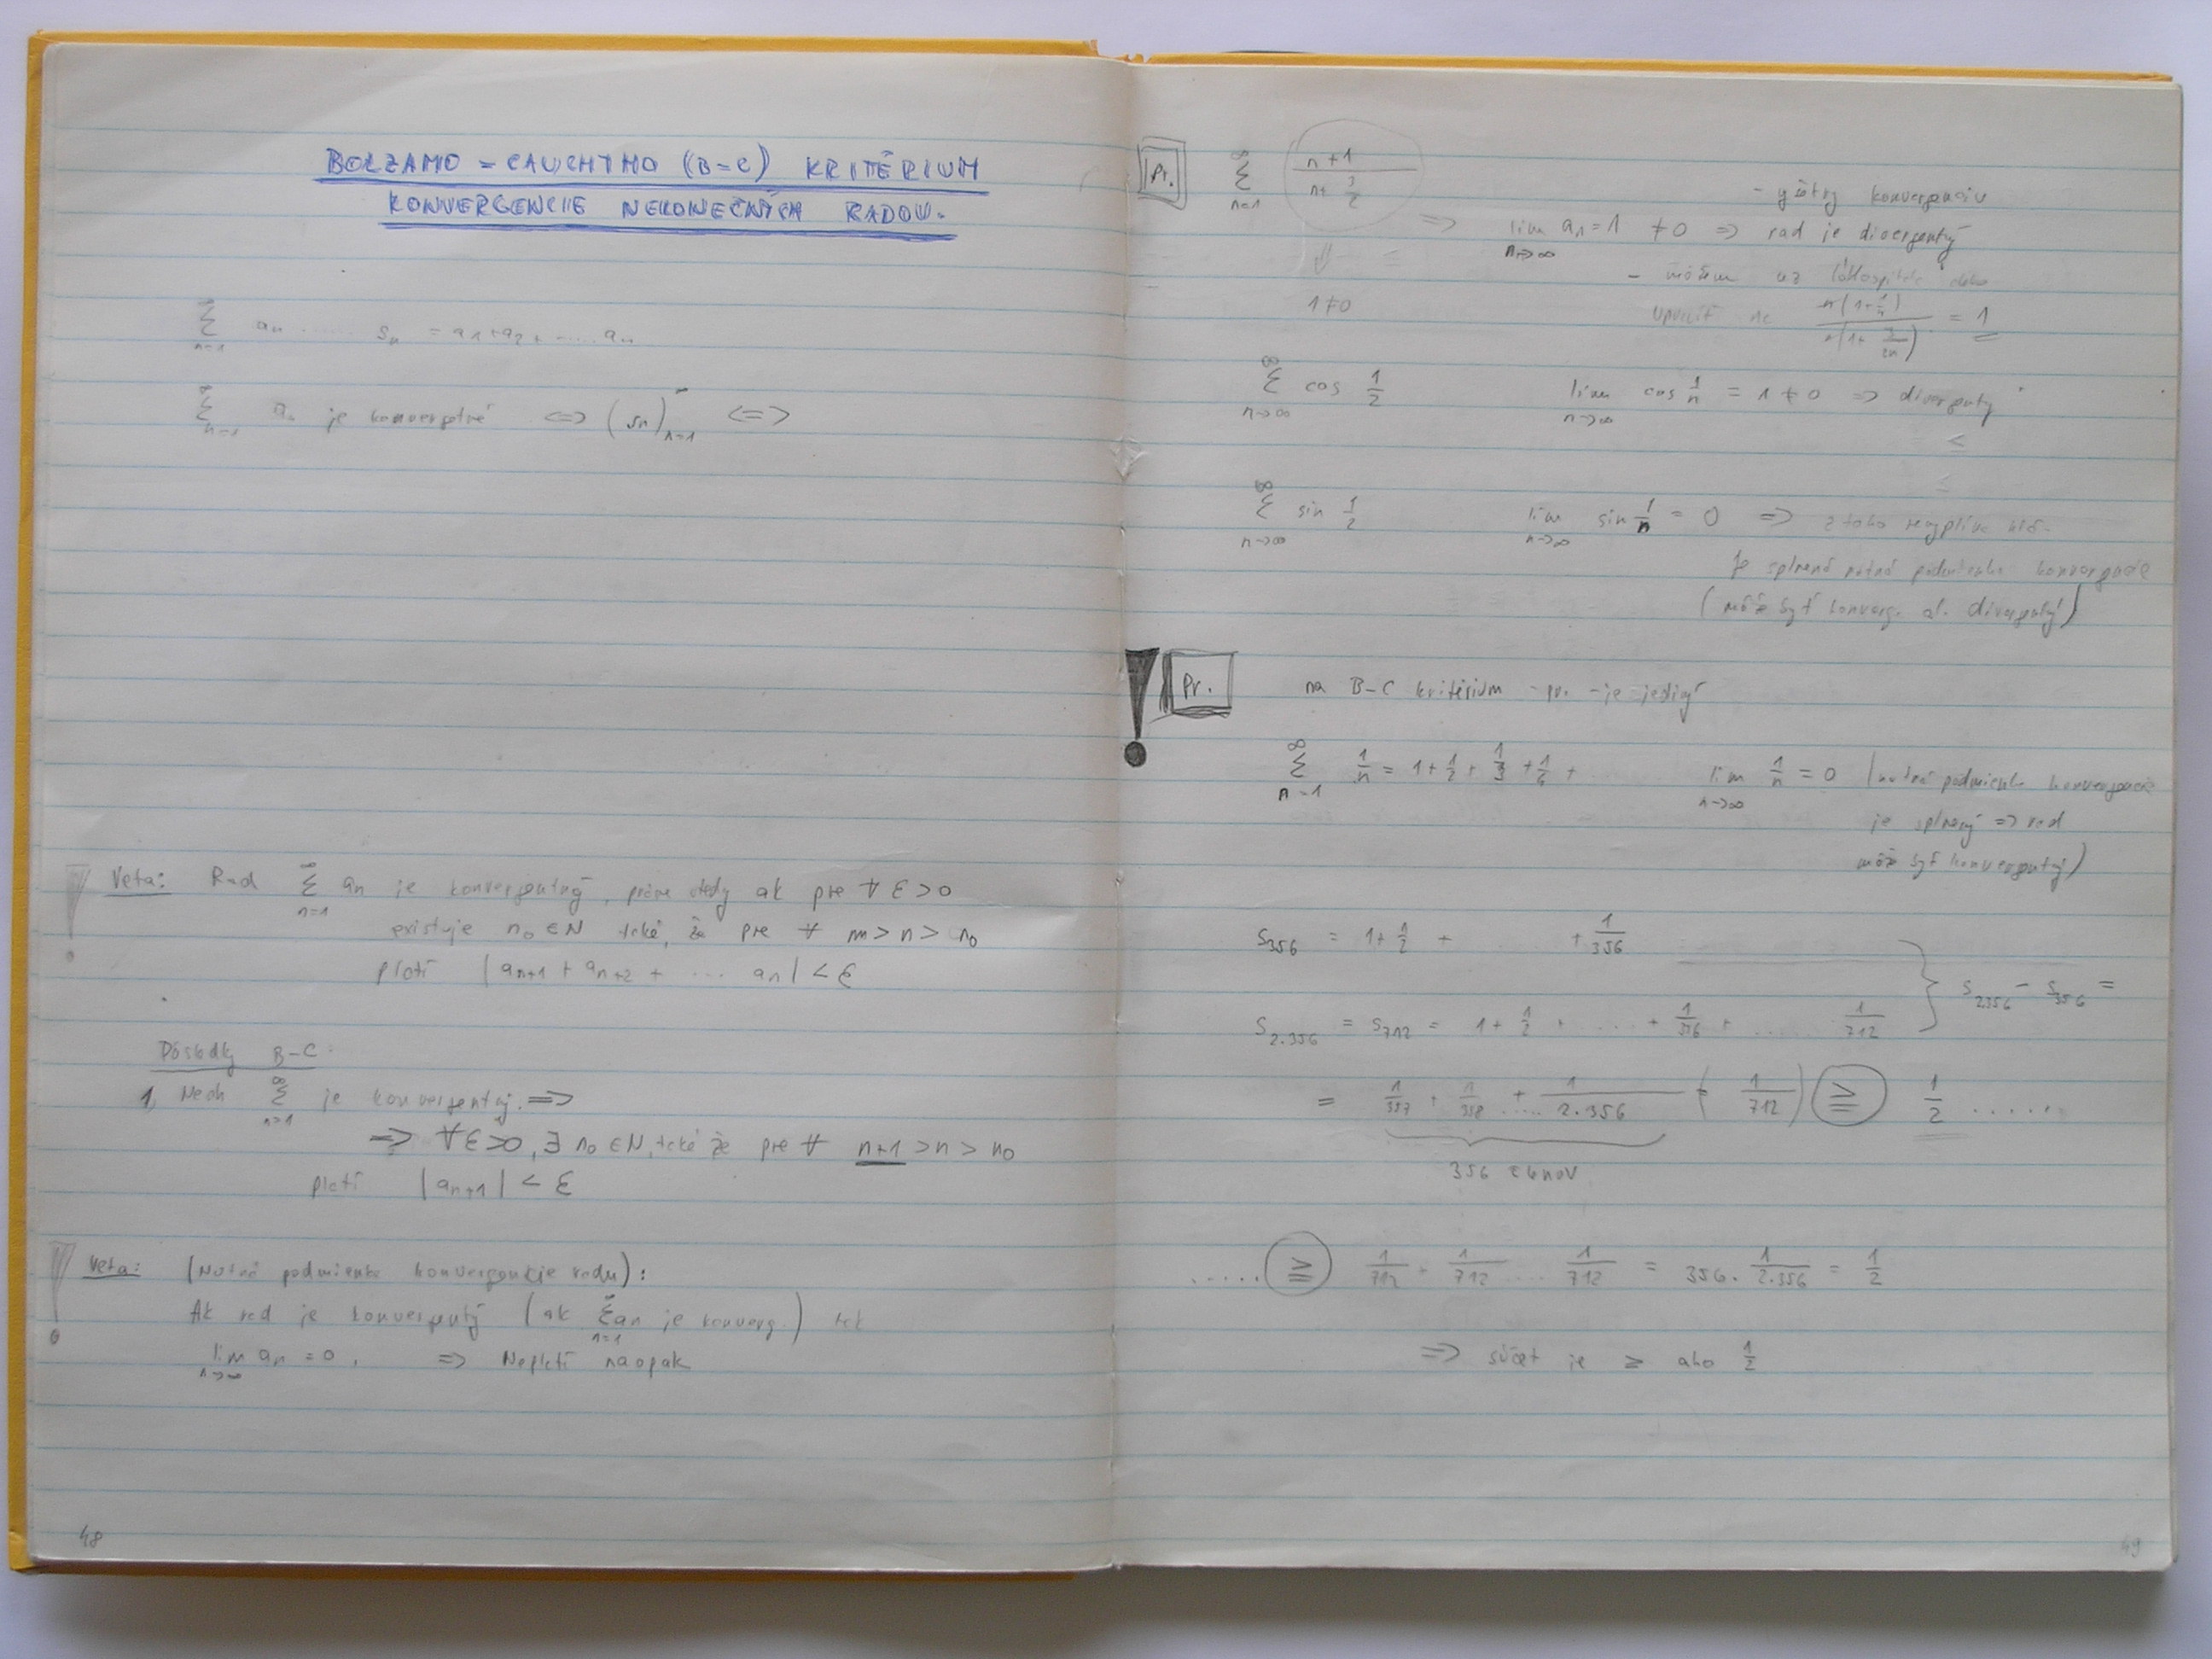 BOLZAMO - CAUCHYHO (B-C) KRITÉRIUM
KONVERGENCIE NEKONEČNÝCH RADOV.
∞ Σ n=1 an ..... sn = a1+a2+.....an
∞ Σ n=1 an je konvergetné <=> (sn)∞ n=1 <=>
Veta: Rad ∞ Σ n=1 an je konvergentný, práve vtedy ak pre ∀ ε>0
existuje n0 ∈ N také, že pre ∀ m > n > n0
platí |an+1 + an+2 + ... an| < ε
Dôsledky B-C
1, Nech ∞ Σ n=1 je konvergentný. =>
=> ∀ε>0, ∃ n0 ∈ N, také že pre ∀ n+1 > n > n0
platí |an+1| < ε
Veta: (Nutná podmienka konvergencie radu):
Ak rad je konvergentý (ak ∞ Σ n=1 an je konverg.) tak
lim n->∞ an = 0, => Neplatí naopak
48
Pr. ∞ Σ n=1 n+1 / n+ 3/2
konvergenciu
=> lim n->∞ an = 1 ≠ 0 => rad je divergentný
1≠0
- môžem
n(1+1/n) / n(1+ 3/2n) = 1
∞ Σ n->∞ cos 1/2 lim n->∞ cos 1/n = 1 ≠ 0 => divergentý
∞ Σ n->∞ sin 1/2 lim n->∞ sin 1/n = 0 => z toho nevyplíva nič.
Je splnená nutná podmienka konvergencie
(môže byť konverg. al. divergentý)
Pr. na B-C kritérium - pr. - je jediný
∞ Σ n=1 1/n = 1 + 1/2 + 1/3 + 1/4 + lim n->∞ 1/n = 0 (nutná podmienka konvergencie
je splnený => rad
može byť konvergentý)
S356 = 1+ 1/2 + ... + 1/356
S2.356 = S712 = 1+ 1/2 + ... + 1/356 + ...... 1/712 } S2.356 - S356 =
= 1/357 + 1/358 ..... + 1/2.356 (= 1/712) ≧ 1/2 ......
356 členov
..... ≧ 1/712 + 1/712 .... 1/712 = 356. 1/2.356 = 1/2
=> súčet je ≥ ako 1/2
49